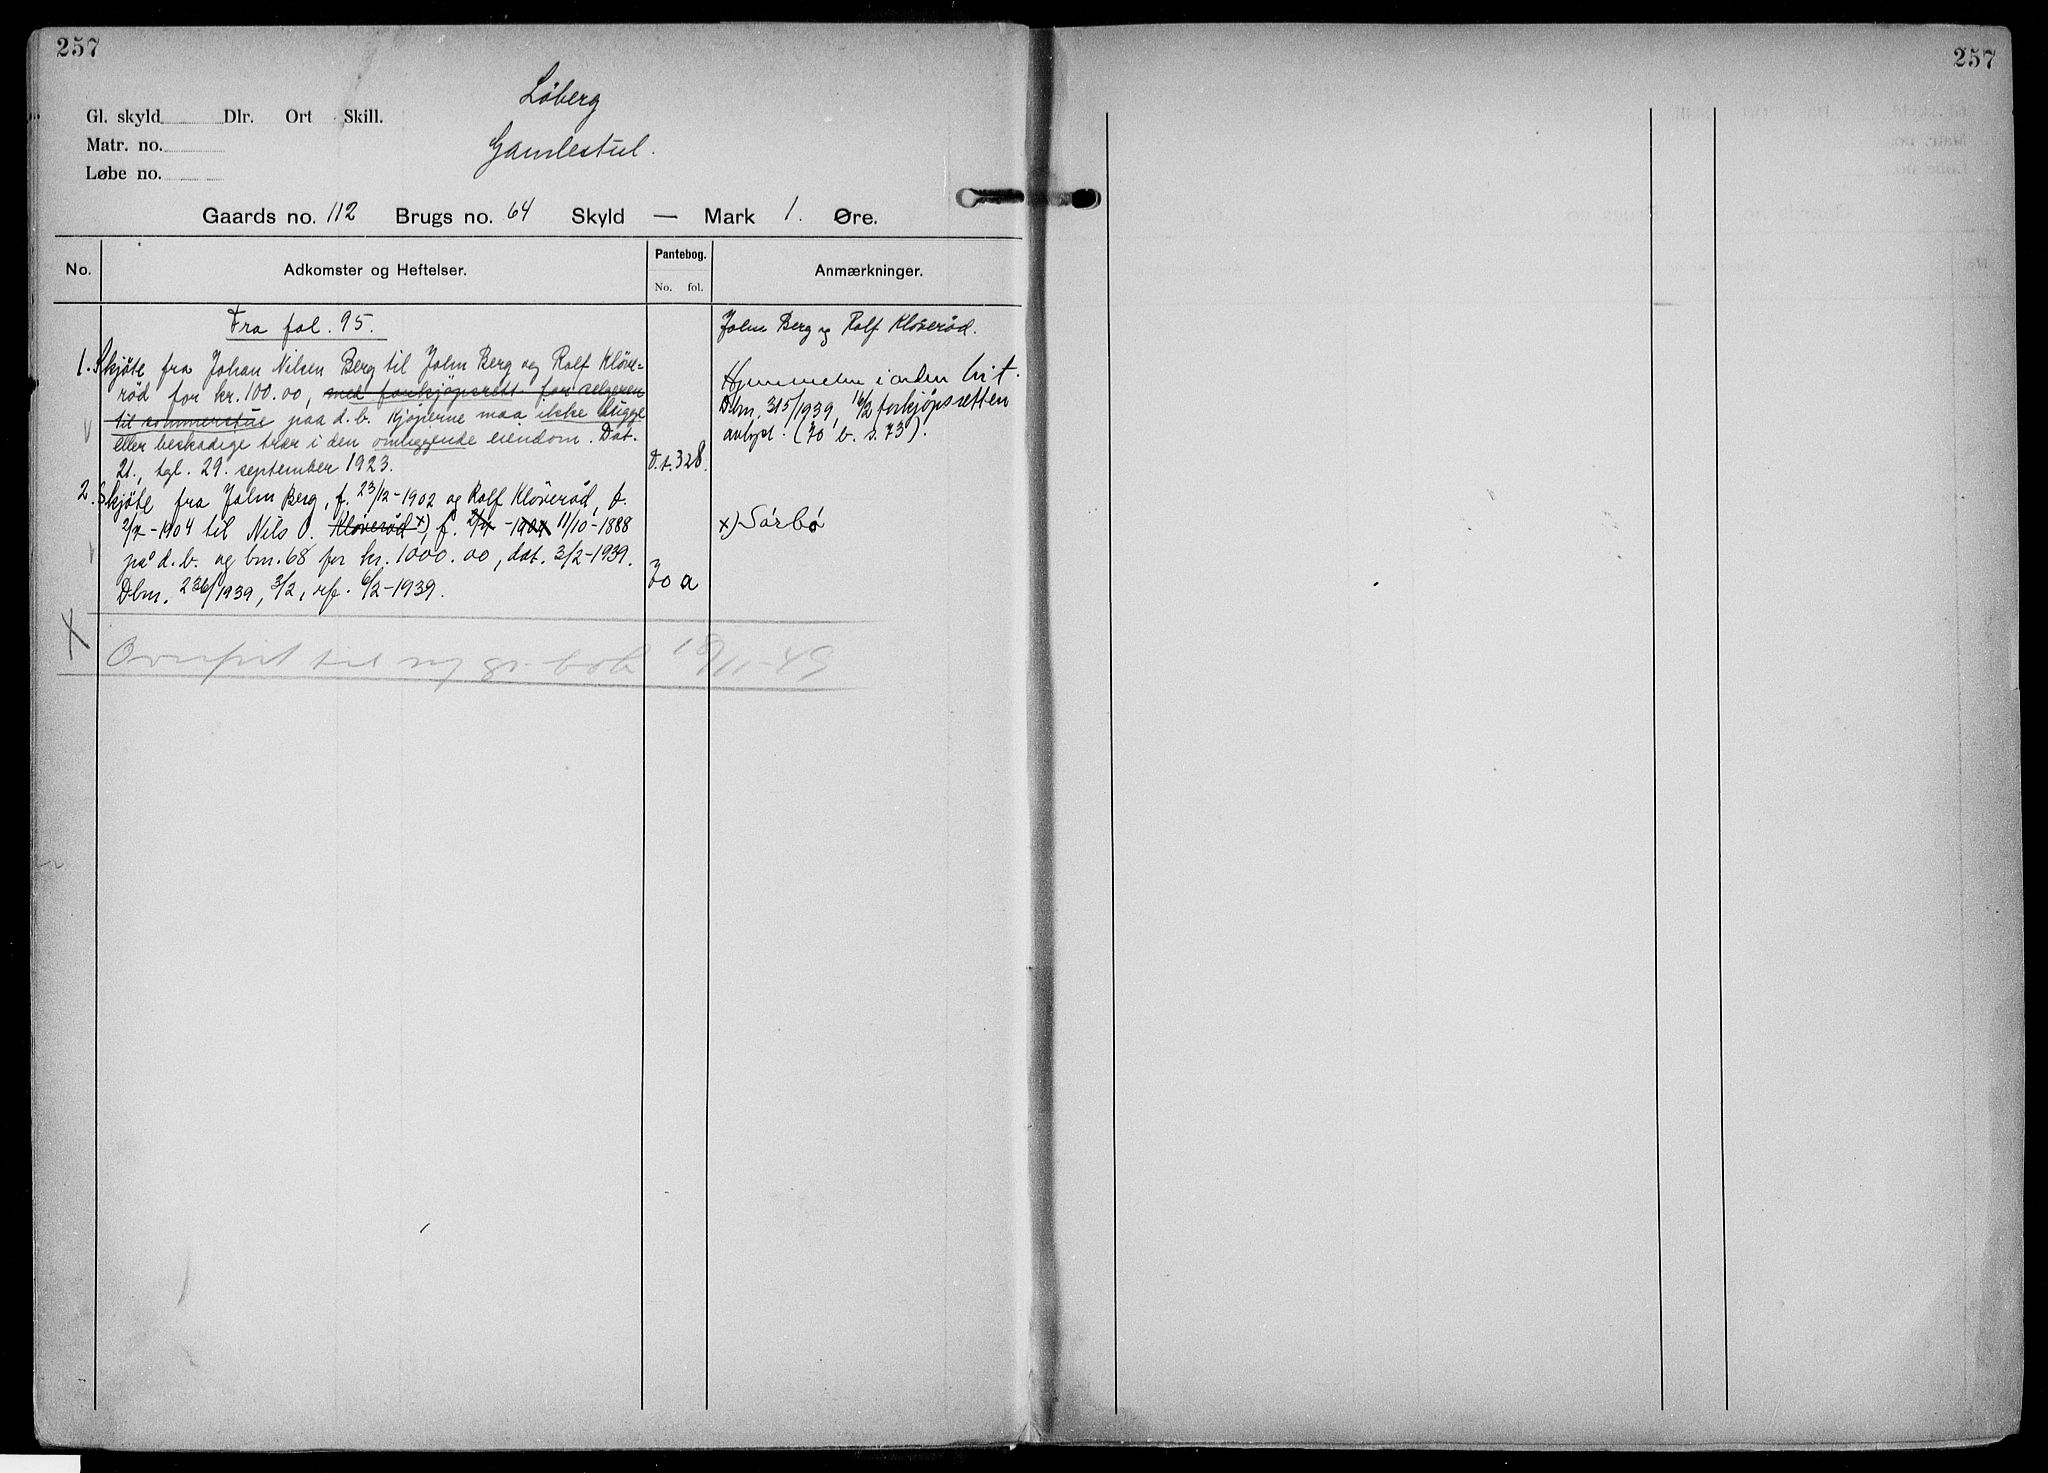 257
257
Løberg
Gl. skyld Dlr. Ort Skill.
Matr. no.
Gamlestul.
Løbe no.
Gaards no. 112 Brugs no. 64 Skyld — Mark 1. Øre.
No. Adkomster og Heftelser. Pantebog. No. fol. Anmærkninger.
Fra fol. 95.
John Berg og Rolf Kløverød.
1. Skjöte fra Johan Nilsen Berg til John Berg og Rolf Kløve-
rød for kr. 100.00, med forkjöpsrett for selgeren
til sommerstue paa d. b. Kjöperne maa ikke hugge
eller beskadige trær i den omliggende eiendom. Dat.
21., tgl. 29. september 1923. D.t. 328.
Hjemmelen i orden hit.
Dbm. 315/1939, 16/2 forkjöpsretten
avlyst. (70 b. s. 73).
2. Skjöte fra John Berg, f. 23/12-1902 og Rolf Kløverød, f.
2/7-1904 til Nils O. Kløverød x) f. 2/7-1904 11/10-1888
på d. b. og bnr. 68 for kr. 1000.00, dat. 3/2-1939.
Dbm. 236/1939, 3/2, ref. 6/2-1939. 70 a
x) Sørbø
x Overført til ny gr.bok 19/11-49